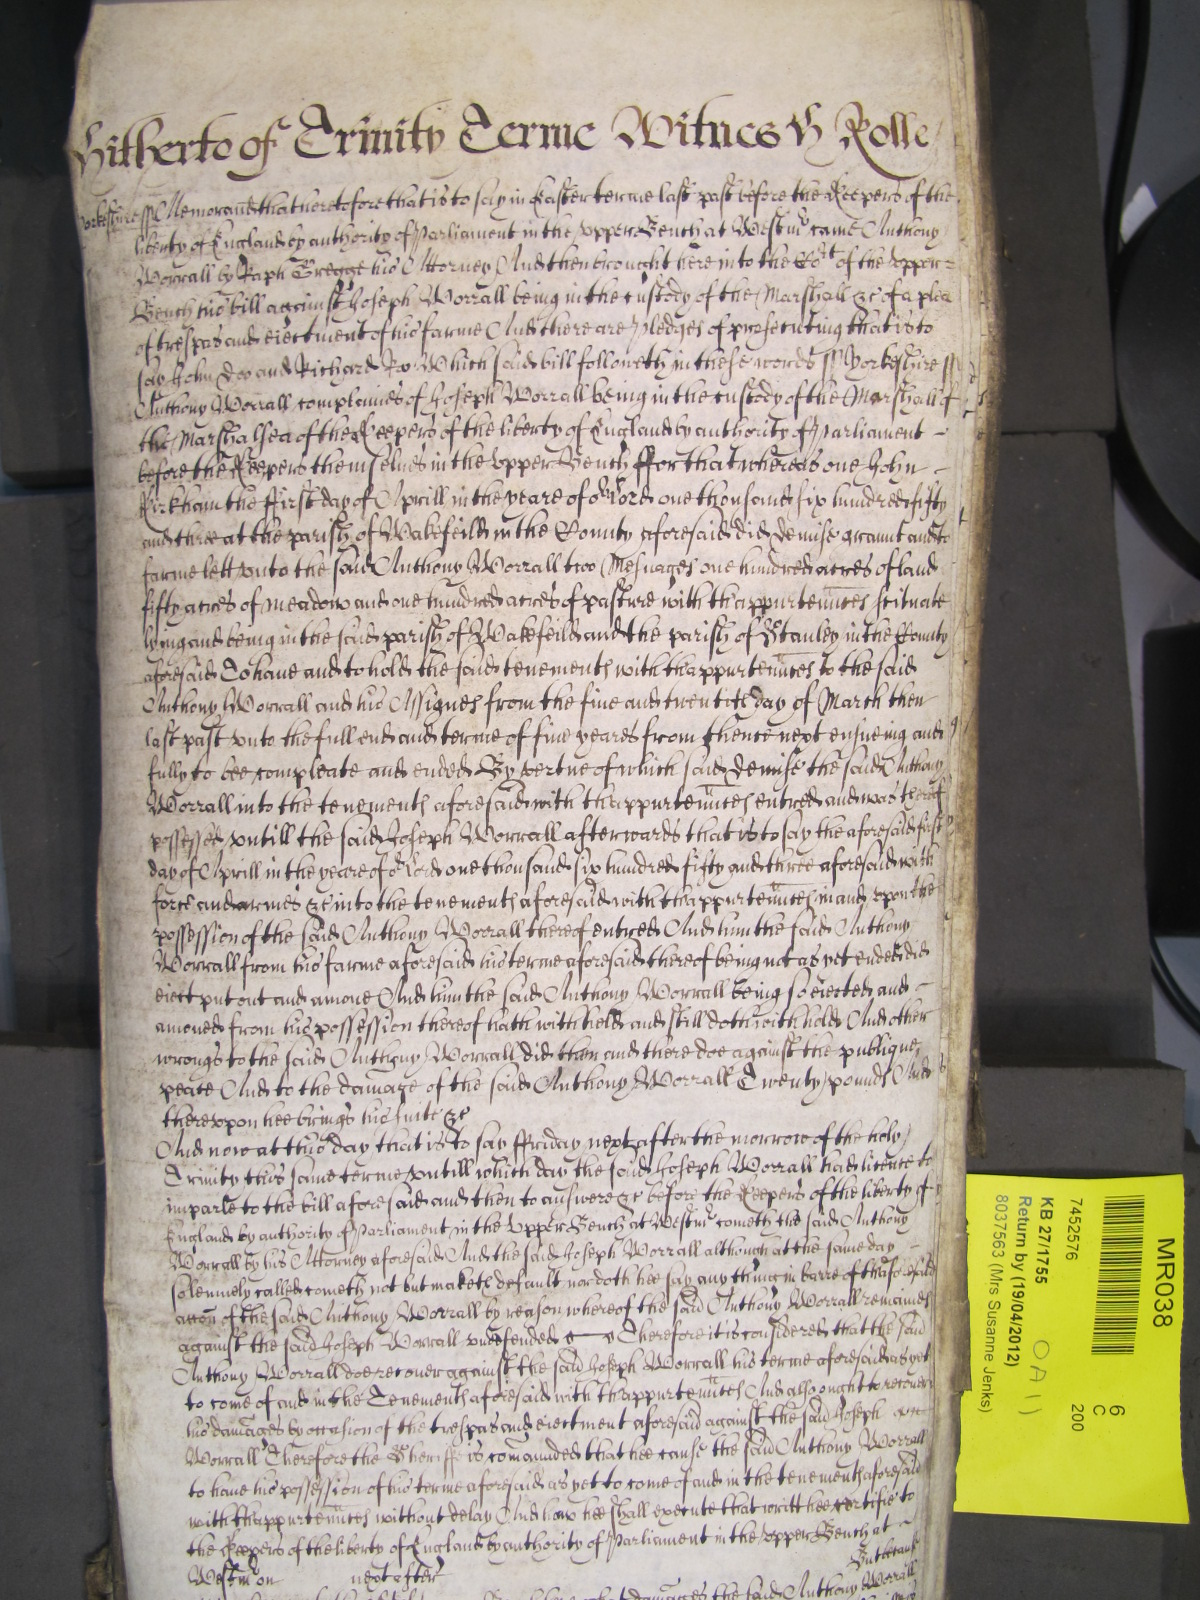 Hitherto of Trinity Terme Witnes H Rolle
Yorkeshire ss Memorand that heretofore that is to say in Easter terme last past before the Keepers of the
liberty of England by authority of Parliament in the upper Bench at Westmr came Anthony
Worrall by Raph Gregge his Attorney And then brought here into the Cort of the upper =
Bench his bill against Joseph Worrall being in the custody of the Marshall &c of a plea
of trespas and eiectment of his farme And there are pledges of prosecuting that is to
say John Doo and Richard Roo Which said bill followeth in these words ss Yorkeshire ss
Anthony Worrall complaines of Joseph Worrall being in the custody of the Marshall of
the Marshalsea of the Keepers of the liberty of England by authority of Parliament –
before the Keepers themselves in the upper Bench ffor that whereas one John –
Kirkham the first day of Aprill in the yeare of or Lord one thousand six hundred fifty
and three at the parish of Wakefeild in the County aforesaid did demise graunt and to
farme lett unto the said Anthony Worrall two Mesuages one hundred acres of land
fifty acres of meadow and one hundred acres of pasture with thappurtennces scituate
lying and being in the said parish of Wakefeild and the parish of Stanley in the County
aforesaid To have and to hold the said tenements with thappurtennces to the said
Anthony Worrall and his Assignes from the five and twentith day of March then
last past unto the full end and terme of five yeares from thence next ensueing and
fully to bee compleate and ended By vertue of which said demise the said Anthony
Worrall into the tenements aforesaid with thappurtennces entred and was thereof
possessed untill the said Joseph Worrall afterwards that is to say the aforesaid first
day of Aprill in the yeare of or Lord one thousand six hundred fifty and three aforesaid with
force and armes &c into the tenements aforesaid with thappurtennces in and upon the
possession of the said Anthony Worrall thereof entred And him the said Anthony
Worrall from his farme aforesaid his terme aforesaid thereof being not as yet ended did
eiect put out and amove And him the said Anthony Worrall being so eiected and –
amoved from his possession thereof hath withheld and still doth withhold And other
wrongs to the said Anthony Worrall did then and there doe against the publique
peace And to the damage of the said Anthony Worrall Twenty pounds And
thereupon hee brings his suite &c
And now at this day that is to say ffriday next after the morrow of the holy
Trinity this same terme untill which day the said Joseph Worrall had licence to
imparle to the bill aforesaid and then to answere &c before the Keepers of the liberty of
England by authority of Parliament in the upper Bench at Westmr cometh the said Anthony
Worrall by his Attorney aforesaid And the said Joseph Worrall although at the same day –
solemnely called cometh not but maketh default nor doth hee say any thing in barre of thaforesaid
accon of the said Anthony Worrall by reason whereof the said Anthony Worrall remaines
against the said Joseph Worrall undefended Therefore it is considered that the said
Anthony Worrall doe recover against the said Joseph Worrall his terme aforesaid as yet
to come of and in the Tenements aforesaid with thappurtennces And also ought to recover
his damages by occasion of the trespas and eiectment aforesaid against the said Joseph
Worrall Therefore the Sheriffe is commanded that hee cause the said Anthony Worrall
to have his possession of his terme aforesaid as yet to come of and in the tenements aforesaid
with thappurtennces without delay And how hee shall execute that writt hee certifie to
the Keepers of the liberty of England by authority of Parliament in the upper Bench at –
Westmr on next after But because
damages the said Anthony Worrall
MR038
6
C
200
7452576
KB 27/1755
Return by (19/04/2012)
8037563 (Mrs Susanne Jenks)
OA 1)